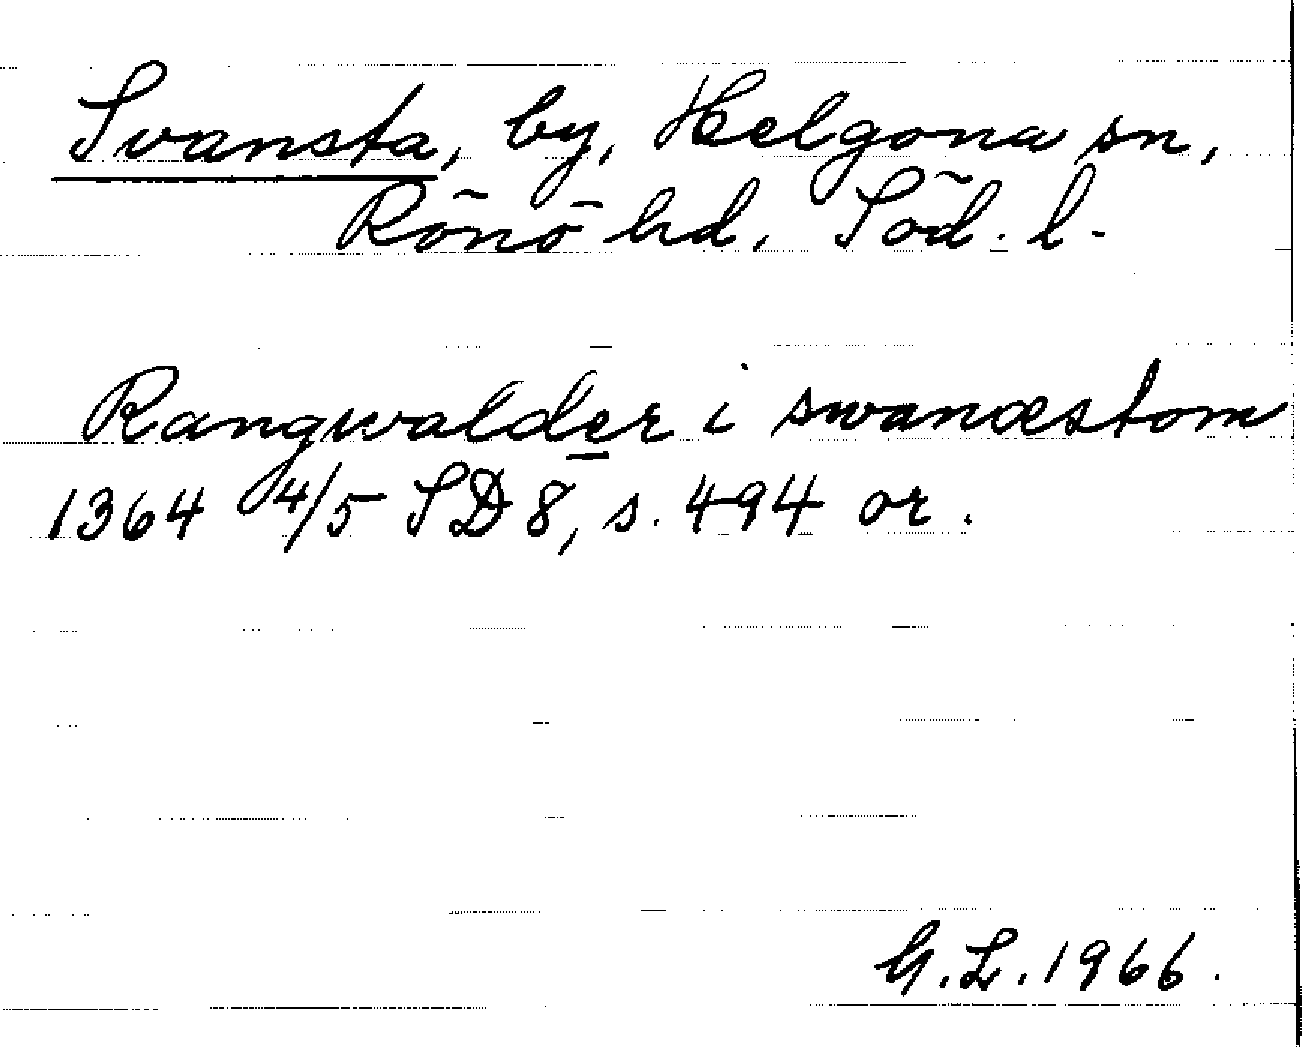 Svansta, by, Helgona sn,
Rönö hd. Söd. l.
Rangwalder i swanæstom
1364 4/5 SD 8, s. 494 or.
G.L. 1966.